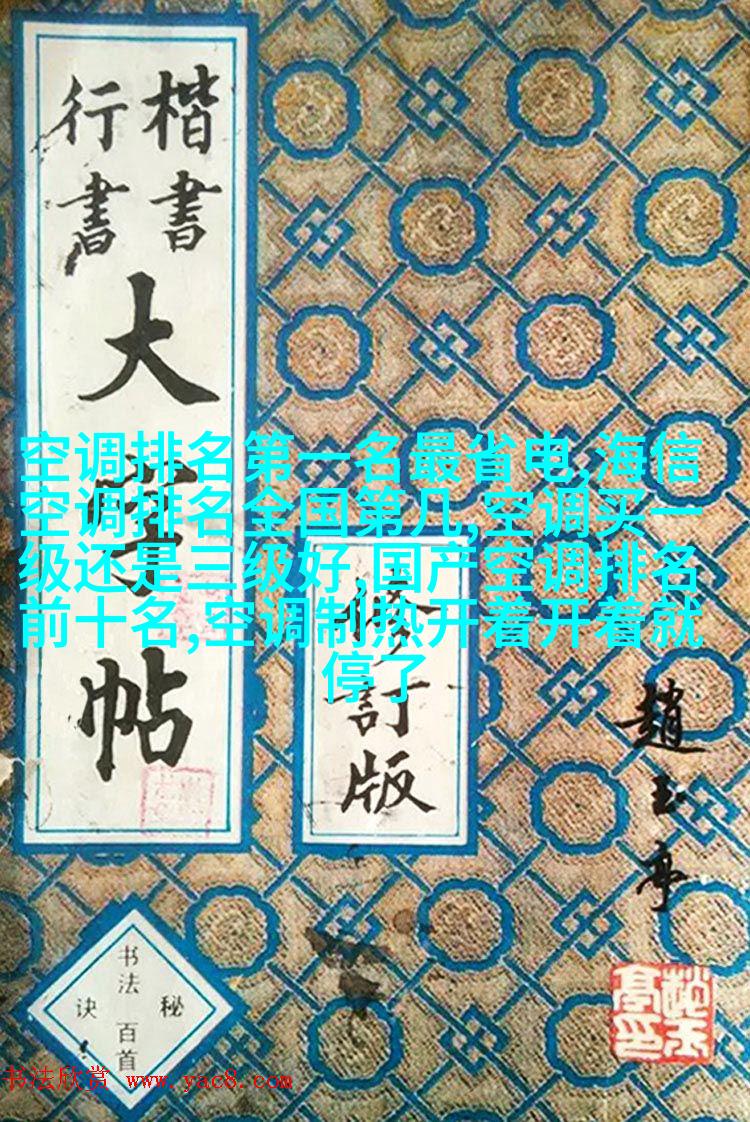 楷書
行書
大字帖
空调排名第一名最省电,海信
空调排名全国第几,空调买一
级还是三级好,国产空调排名
前十名,空调制热开着开着就
停了
修訂版
趙玉亭
书法百首
秘
诀
书法欣赏 www.yac8.com